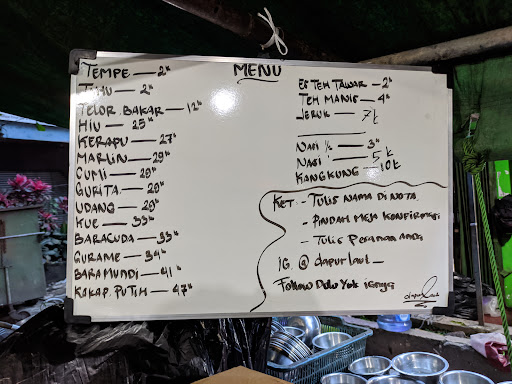 MENU
TEMPE — 2ᴷ
TAHU — 2ᴷ
TELOR BAKAR — 12ᴷ
HIU — 25ᴷ
KERAPU — 27ᴷ
MARLIN — 29ᴷ
CUMI — 29ᴷ
GURITA — 29ᴷ
UDANG — 29ᴷ
KUE — 33ᴷ
BARACUDA — 33ᴷ
GURAME — 34ᴷ
BARAMUNDI — 41ᴷ
KAKAP PUTIH — 47ᴷ
ES TEH TAWAR — 2ᴷ
TEH MANIS — 4ᴷ
JERUK — 7k
NASI ½ — 3ᴷ
NASI 1 — 5k
KANGKUNG — 10k
KET. - TULIS NAMA DI NOTA
- PINDAH MEJA KONFIRMASI
- TULIS PESANAN ANDA
IG. @ dapur laut_
Follow Dulu Yuk iGnya